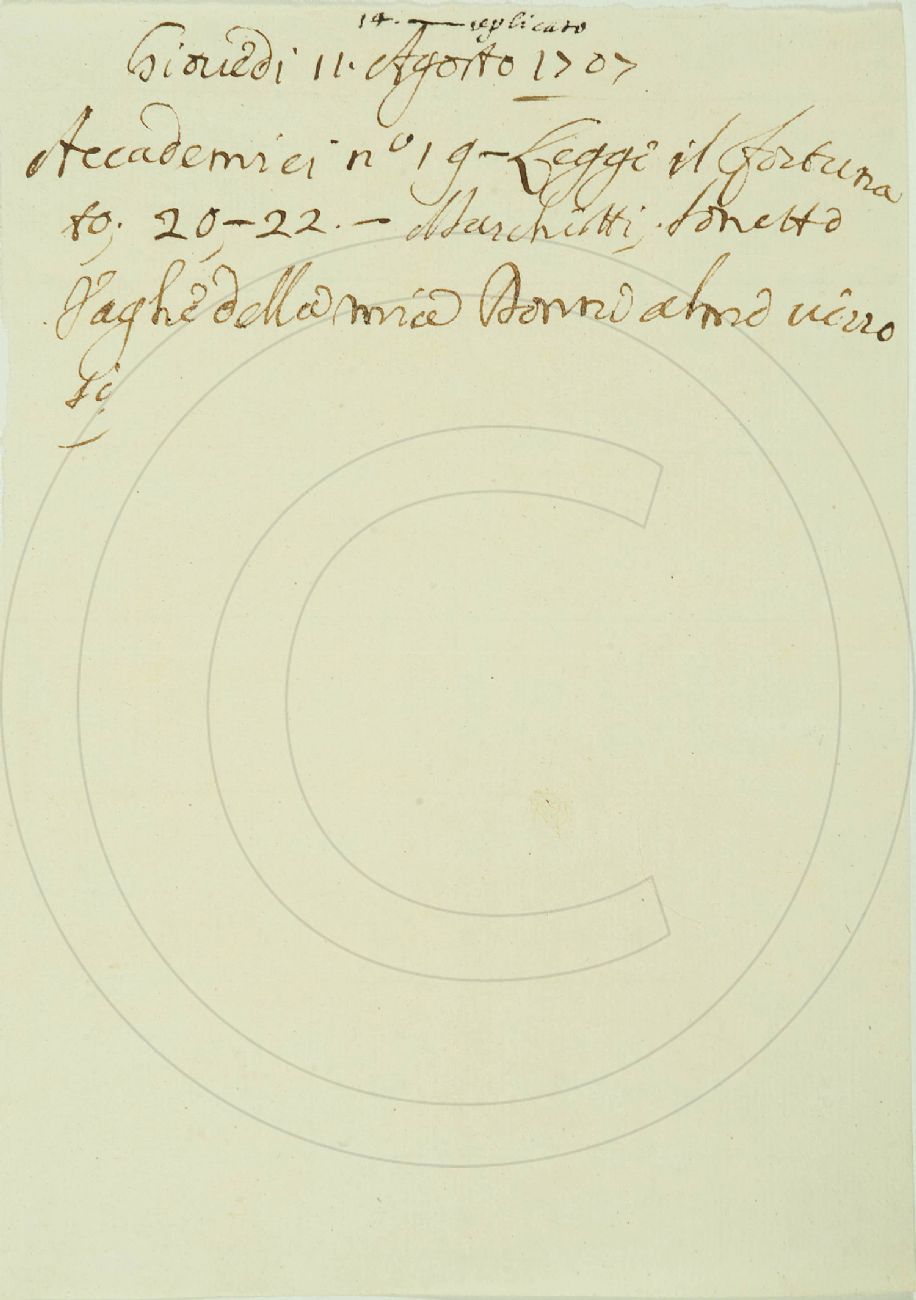 14. — replicato
Giovedi 11. Agosto 1707
Accademici nº 19 - Legge il fortuna
to; 20,-22. - Marchetti; sonetto
Vaghe della mia Donna alme
si